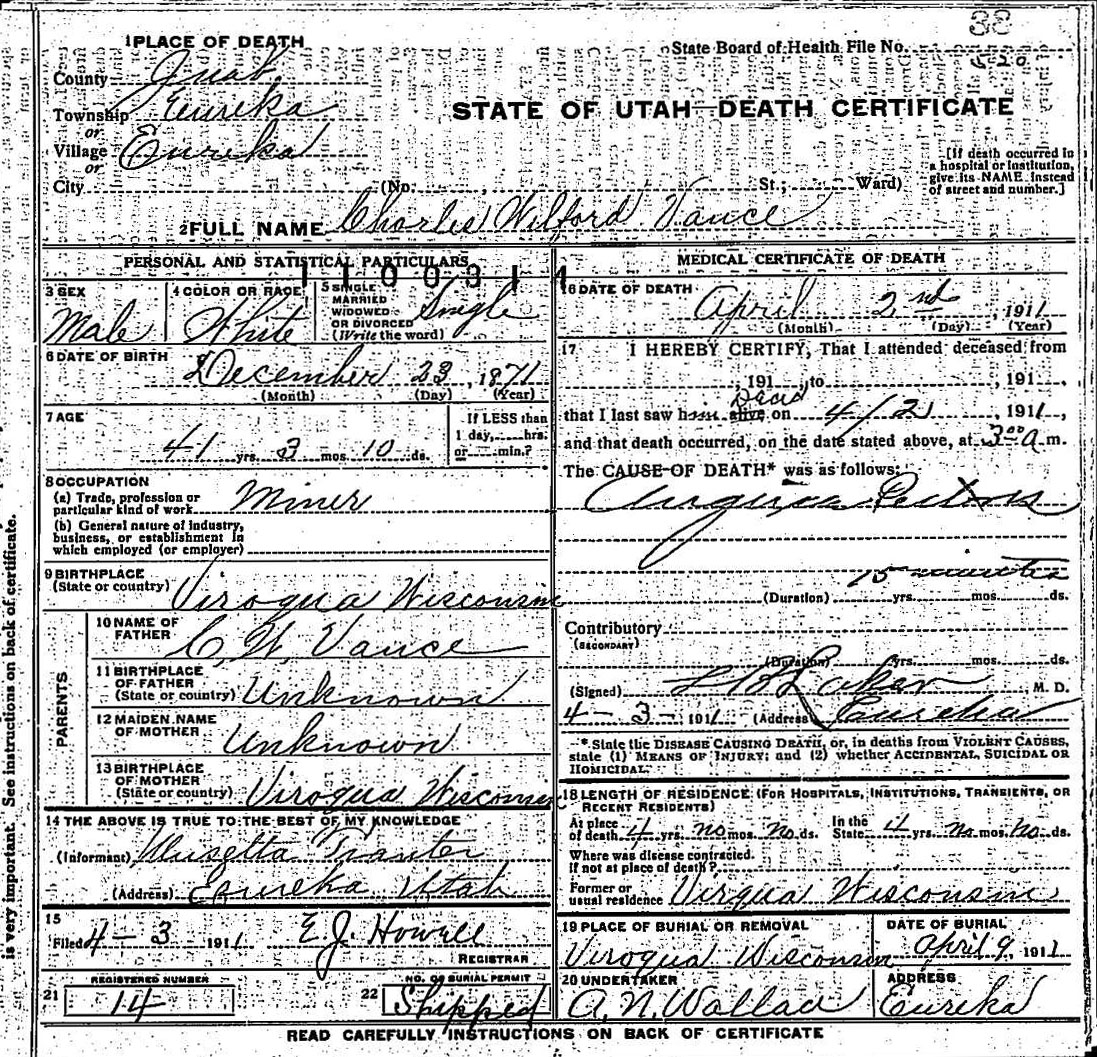 38
1 PLACE OF DEATH
State Board of Health File No.
County Juab.
Township Eureka
STATE OF UTAH—DEATH CERTIFICATE
or
Village Eureka
or
City (No. , St.; Ward)
[If death occurred in
a hospital or institution,
give its NAME instead
of street and number.]
2 FULL NAME Charles Wilford Vance
PERSONAL AND STATISTICAL PARTICULARS
1100314
3 SEX
Male
4 COLOR OR RACE
White
5 SINGLE
MARRIED
WIDOWED
OR DIVORCED
(Write the word)
Single
6 DATE OF BIRTH
December 23, 1871
(Month) (Day) (Year)
7 AGE
41 yrs. 3 mos. 10 ds.
If LESS than
1 day, hrs.
or min.?
8 OCCUPATION
(a) Trade, profession or
particular kind of work Miner
(b) General nature of industry,
business, or establishment in
which employed (or employer)
9 BIRTHPLACE
(State or country) Viroqua Wisconsin
PARENTS
10 NAME OF
FATHER C. W. Vance
11 BIRTHPLACE
OF FATHER
(State or country) Unknown
12 MAIDEN NAME
OF MOTHER Unknown
13 BIRTHPLACE
OF MOTHER
(State or country) Viroqua Wisconsin
14 THE ABOVE IS TRUE TO THE BEST OF MY KNOWLEDGE
(Informant) Musetta Tranter
(Address) Eureka Utah
15
Filed 4-3-1911 E J. Howell
REGISTRAR
REGISTERED NUMBER
21 14
NO. OF BURIAL PERMIT
22 Shipped
MEDICAL CERTIFICATE OF DEATH
16 DATE OF DEATH
April 2nd, 1911
(Month) (Day) (Year)
17 I HEREBY CERTIFY, That I attended deceased from
, 191 , to , 191 ,
Dead
that I last saw him alive on 4/2, 1911,
and that death occurred, on the date stated above, at 3 00 a m.
The CAUSE OF DEATH* was as follows:
Angina Pectoris
15 minutes
(Duration) yrs. mos. ds.
Contributory
(SECONDARY)
(Duration) yrs. mos. ds.
(Signed) M. D.
4-3-1911 (Address) Eureka
* State the DISEASE CAUSING DEATH, or, in deaths from VIOLENT CAUSES,
state (1) MEANS OF INJURY; and (2) whether ACCIDENTAL, SUICIDAL OR
HOMICIDAL.
18 LENGTH OF RESIDENCE (FOR HOSPITALS, INSTITUTIONS, TRANSIENTS, OR
RECENT RESIDENTS)
At place
of death 4 yrs. no mos. no ds.
In the
State 4 yrs. no mos. no ds.
Where was disease contracted.
If not at place of death?
Former or
usual residence Virqua Wisconsin
19 PLACE OF BURIAL OR REMOVAL
Viroqua Wisconsin
DATE OF BURIAL
April 9, 1911
20 UNDERTAKER
A. N. Wallace
ADDRESS
Eureka
READ CAREFULLY INSTRUCTIONS ON BACK OF CERTIFICATE
is very important. See instructions on back of certificate.